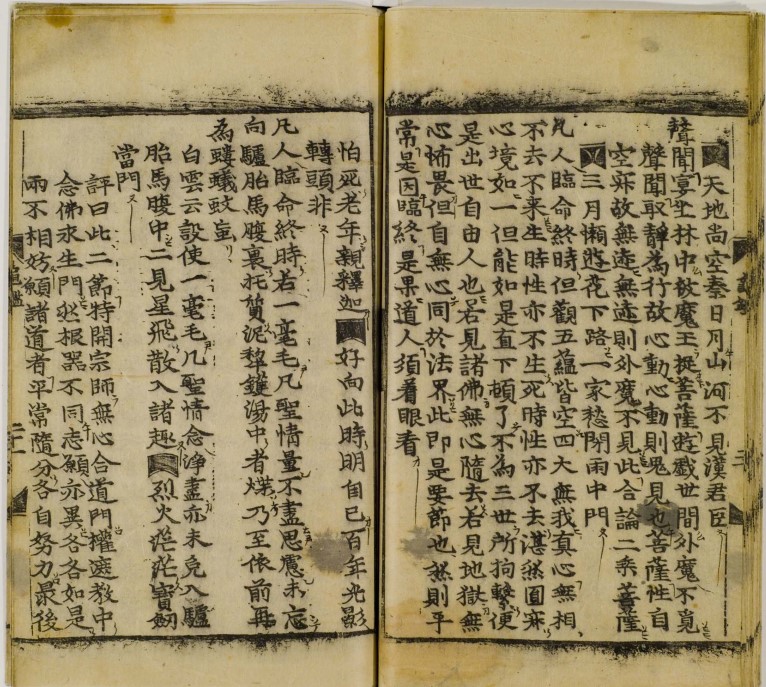 天地尚空秦日月山河不見漢君臣
聲聞宴坐林中被魔王捉菩薩遊戲世間外魔不覓
聲聞取靜為行故心動心動則鬼見也菩薩性自
空寂故無迹無迹則外魔不見此合論二乘菩薩
三月懶遊花下路一家愁閉雨中門
凡人臨命終時但觀五蘊皆空四大無我真心無相
不去不来生時性亦不生死時性亦不去湛然圓寂
心境如一但能如是直下頓了不為三世所拘繫便
是出世自由人也若見諸佛無心隨去若見地獄無
心怖畏但自無心同於法界此即是要節也然則平
常是因臨終是果道人須着眼看
怕死老年親釋迦 好向此時明自己百年光影
轉頭非
凡人臨命終時若一毫毛凡聖情量不盡思慮未忘
向驢胎馬腹裏托質泥犁鑊湯中煑煠乃至依前再
為螻蟻蚊蝱
白雲云設使一毫毛凡聖情念淨盡亦未免入驢
胎馬腹中二見星飛散入諸趣 烈火茫茫寶劒
當門
評曰此二節特開宗師無心合道門權遮教中
念佛求生門然根器不同志願亦異各各如是
兩不相妨願諸道者平常隨分各自努力最後